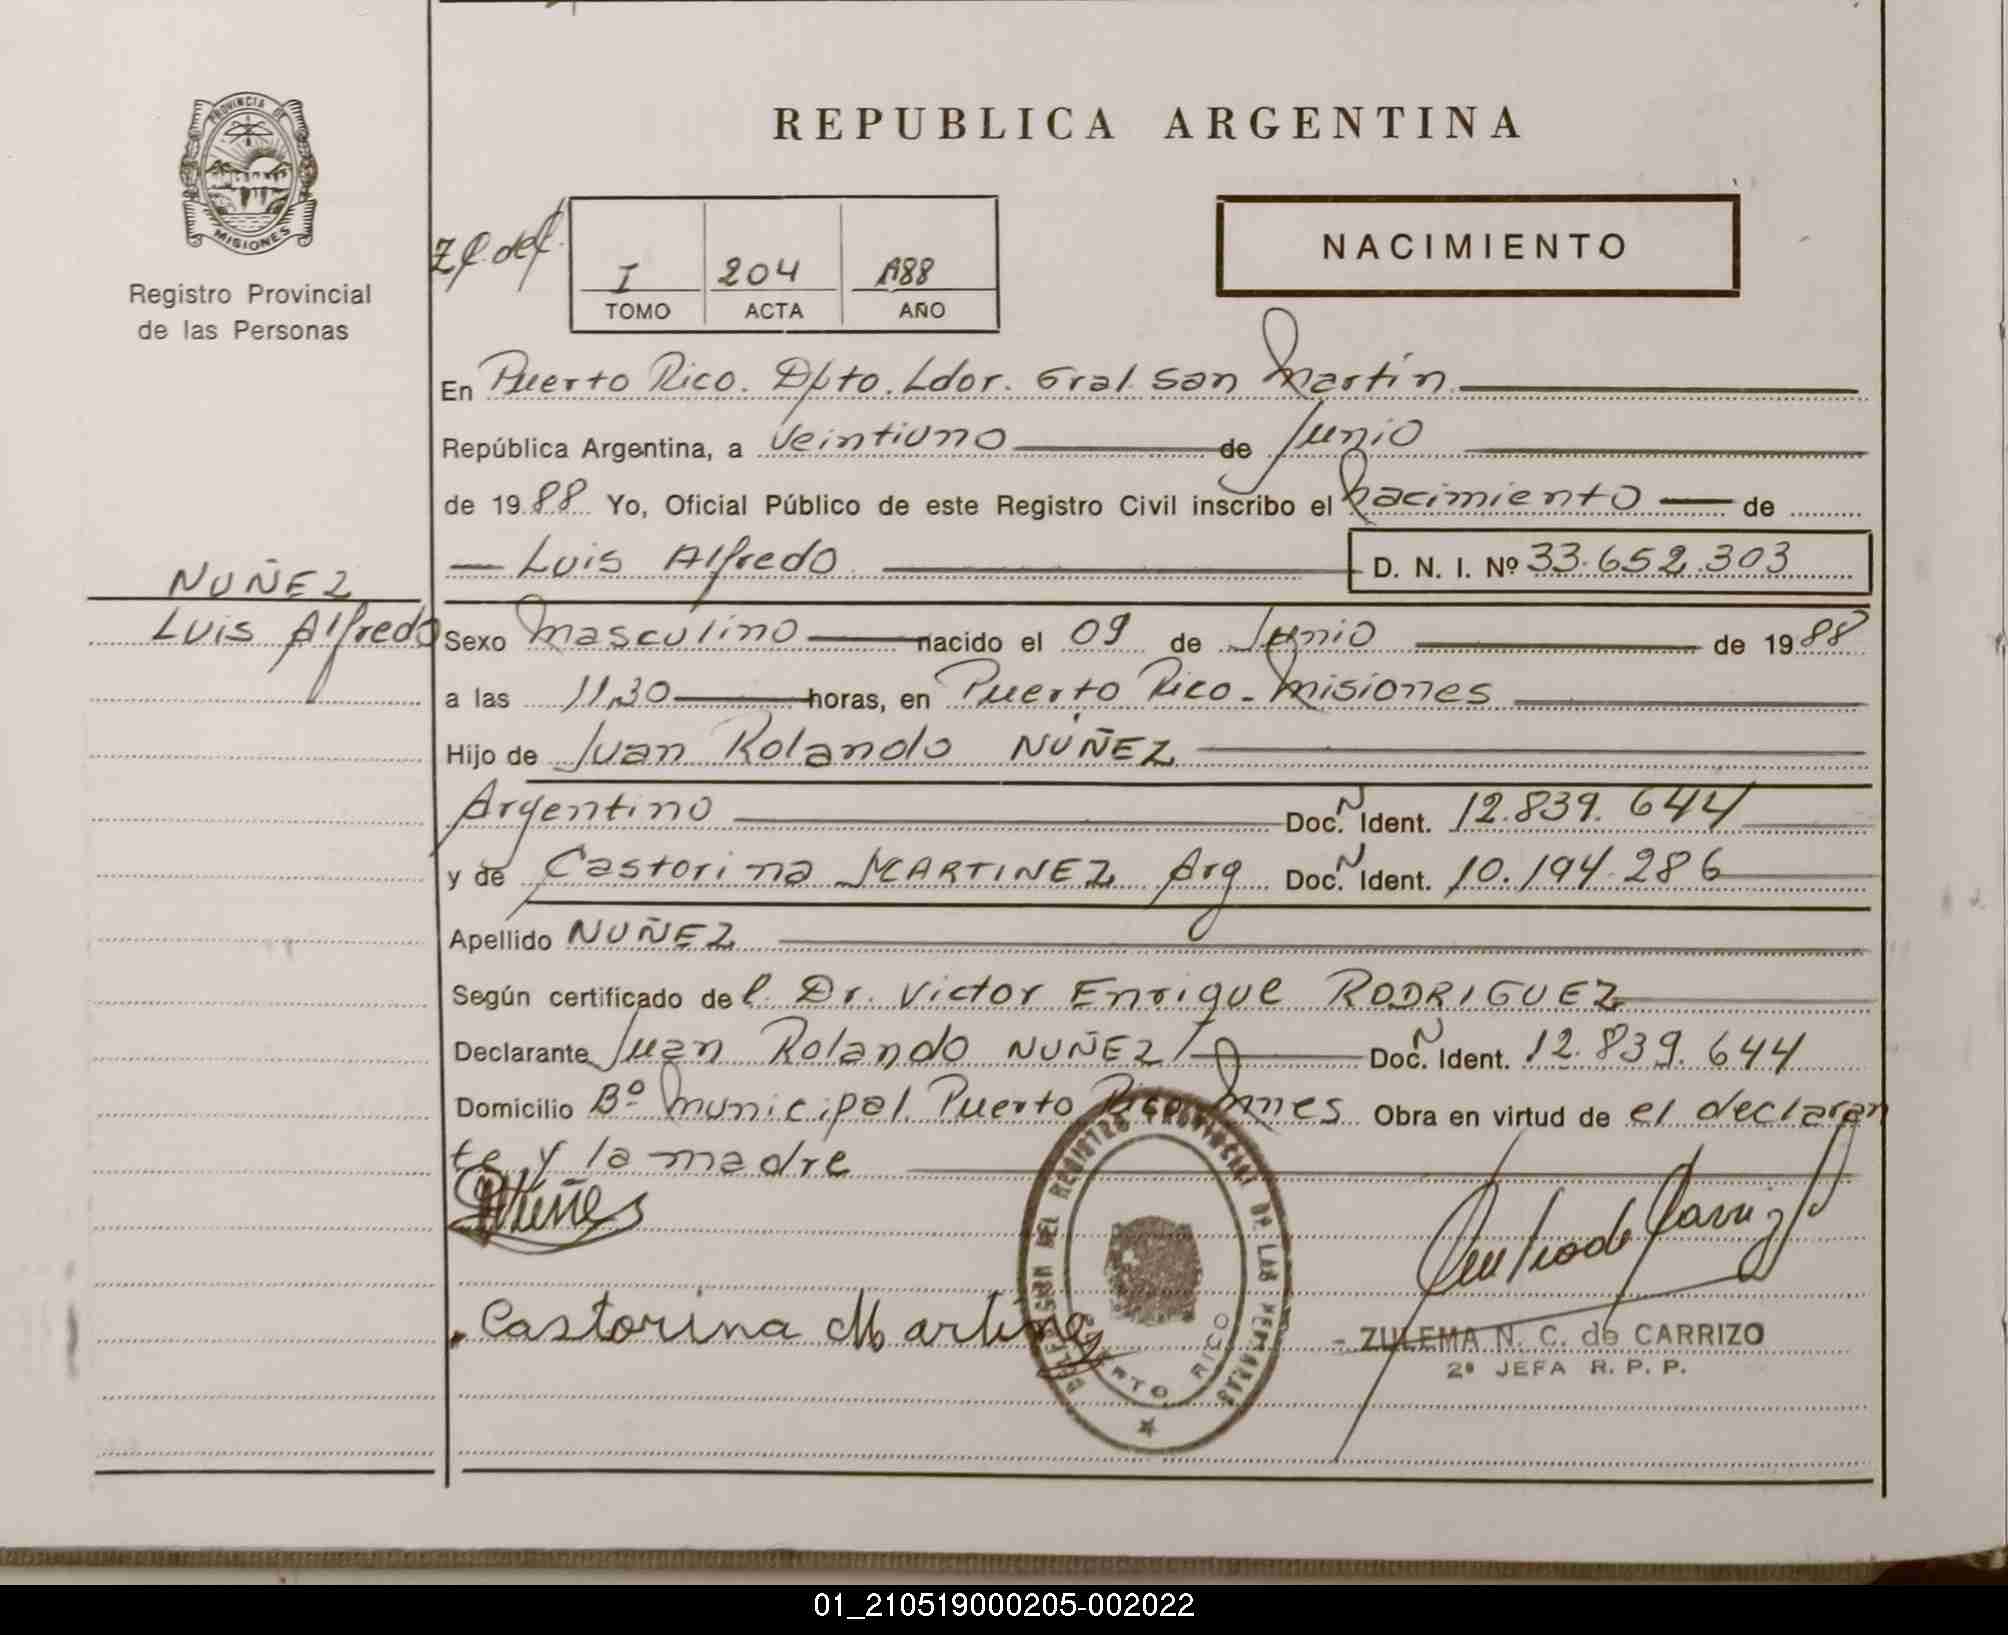 PROVINCIA DE
MISIONES
Registro Provincial
de las Personas
NUÑEZ
Luis Alfredo
REPUBLICA ARGENTINA
NACIMIENTO
I 204 A88
TOMO ACTA AÑO
En Puerto Rico. Dpto. Ldor. Gral. San Martín
República Argentina, a Veintiuno de Junio
de 1988 Yo, Oficial Público de este Registro Civil inscribo el nacimiento de
Luis Alfredo D. N. I. Nº 33.652.303
Sexo masculino nacido el 09 de Junio de 1988
a las 11,30 horas, en Puerto Rico - Misiones
Hijo de Juan Rolando NUÑEZ
Argentino Doc. Ñ Ident. 12.839.644
y de Castorina MARTINEZ Arg Doc. Ñ Ident. 10.194.286
Apellido NUÑEZ
Según certificado del Dr. Victor Enrique RODRIGUEZ
Declarante Juan Rolando NUÑEZ Doc. Ñ Ident. 12.839.644
Domicilio Bº Municipal Puerto Rico Mnes Obra en virtud de el declaran
te y la madre
Castorina Martinez
DELEGACION DEL REGISTRO PROVINCIAL DE LAS PERSONAS
PUERTO RICO
ZULEMA N. C. de CARRIZO
2ª JEFA R. P. P.
01_210519000205-002022